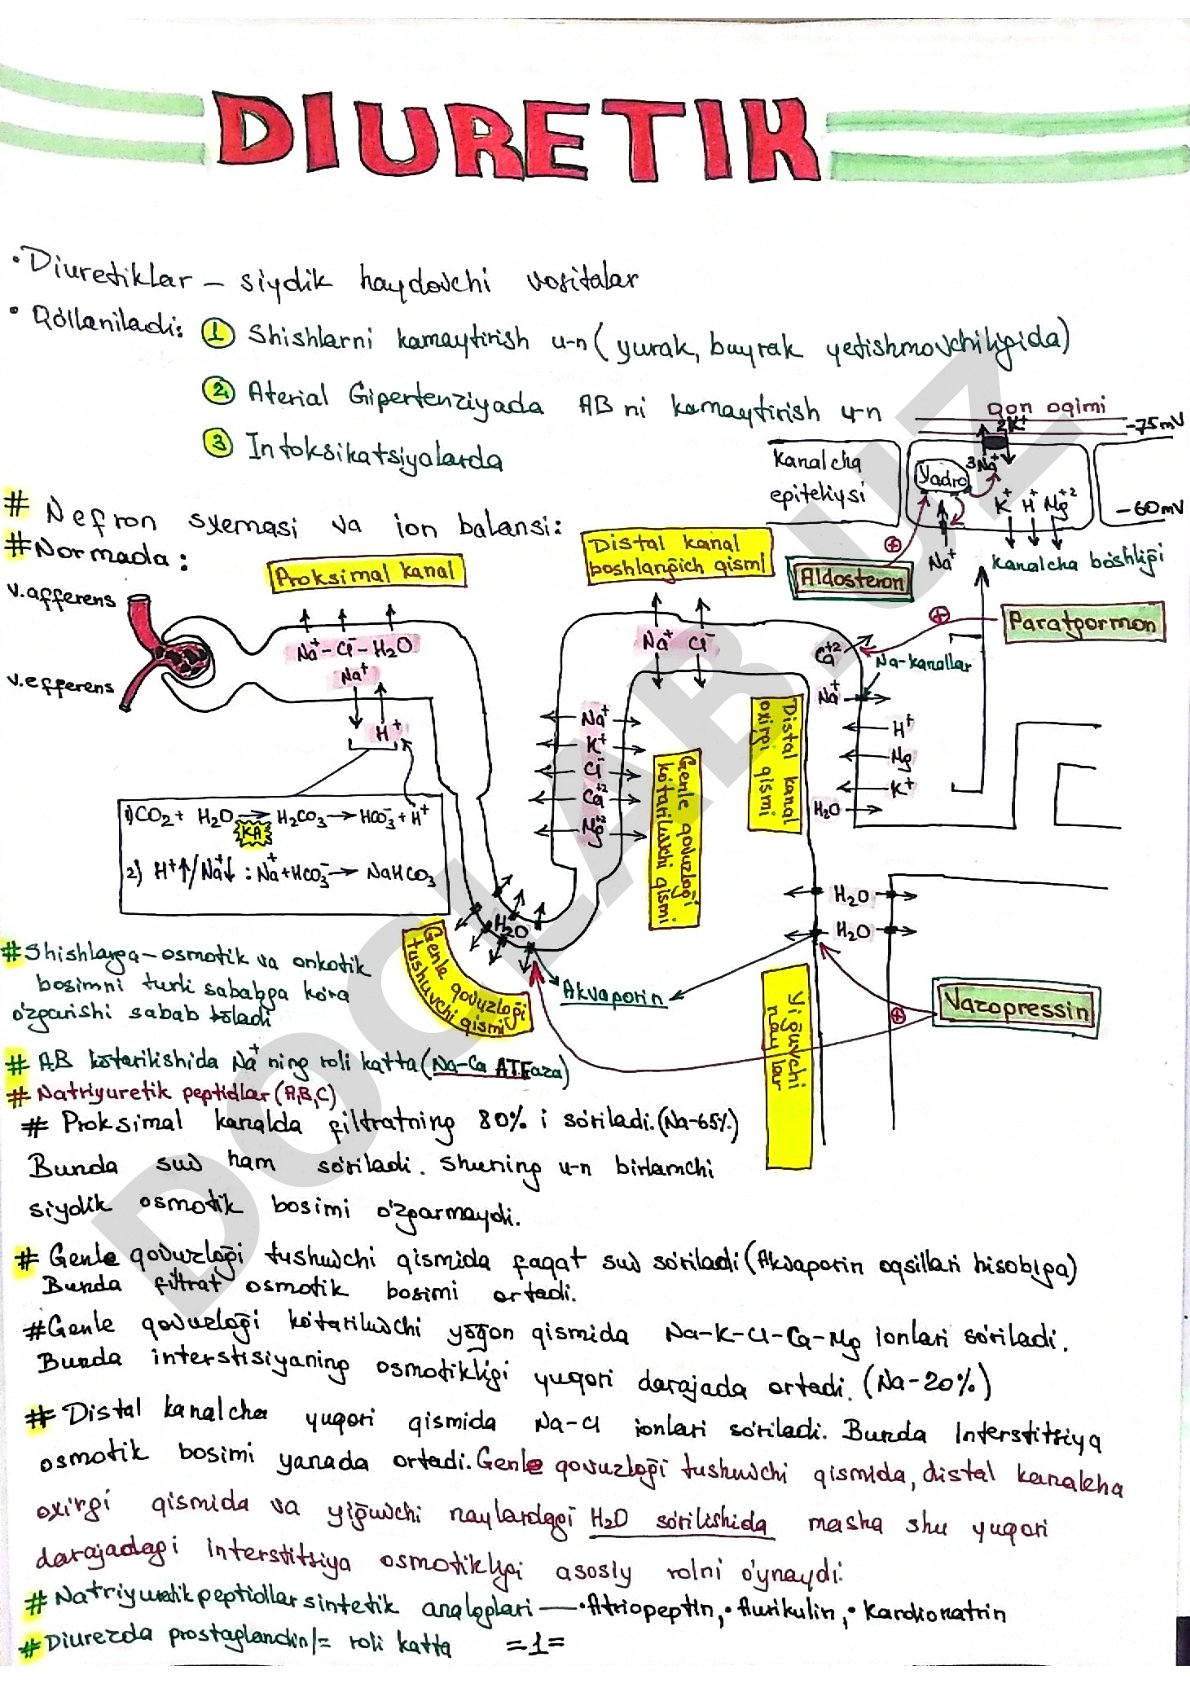 DIURETIK
• Diuretiklar – siydik haydovchi vositalar
• Qo'llaniladi: ① Shishlarni kamaytirish u-n (yurak, buyrak yetishmovchiligida)
② Aterial Gipertenziyada AB ni kamaytirish u-n
③ Intoksikatsiyalarda
Qon oqimi
2K⁺
-75mV
Kanalcha epiteliysi
Yadro
3Na⁺
K⁺ H⁺ Mg⁺²
-60mV
Na⁺
Kanalcha bo'shlig'i
# Nefron sxemasi va ion balansi:
# Normada:
Proksimal kanal
Distal kanal
boshlang'ich qismi
Aldosteron
Paratgormon
v.afferens
v.efferens
Na⁺-Cl⁻-H₂O
Na⁺
H⁺
Na⁺ Cl⁻
Ca⁺²
Na-kanallar
Na⁺
H⁺
Mg
K⁺
H₂O
Na⁺
K⁺
Cl⁻
Ca⁺²
Mg⁺²
Genle qovuzlog'i
ko'tariluvchi qismi
Distal kanal
oxirgi qismi
1) CO₂ + H₂O → H₂CO₃ → HCO₃⁻ + H⁺
KA
2) H⁺↑/Na⁺↓ : Na⁺+HCO₃⁻ → NaHCO₃
H₂O
H₂O
H₂O
Genle qovuzlog'i
tushuvchi qismi
Akvaporin
Yig'uvchi
naychalar
Vazopressin
# Shishlarga – osmotik va onkotik
bosimni turli sababga ko'ra
o'zgarishi sabab bo'ladi
# AB ko'tarilishida Na⁺ ning roli katta (Na-Ca ATFaza)
# Natriyuretik peptidlar (A,B,C)
# Proksimal kanalda filtratning 80% i so'riladi. (Na-65%)
Bunda suv ham so'riladi. Shuning u-n birlamchi
siydik osmotik bosimi o'zgarmaydi.
# Genle qovuzlog'i tushuvchi qismida faqat suv so'riladi (Akvaporin oqsillari hisobiga)
Bunda filtrat osmotik bosimi ortadi.
# Genle qovuzlog'i ko'tariluvchi yo'g'on qismida Na-K-Cl-Ca-Mg ionlari so'riladi.
Bunda interstisiyaning osmotikligi yuqori darajada ortadi. (Na-20%)
# Distal kanalcha yuqori qismida Na-Cl ionlari so'riladi. Bunda Interstitsiya
osmotik bosimi yanada ortadi. Genle qovuzlog'i tushuvchi qismida, distal kanalcha
oxirgi qismida va yig'uvchi naylardagi H₂O so'rilishida mana shu yuqori
darajadagi interstitsiya osmotikligi asosiy rolni o'ynaydi.
# Natriyuretik peptidlar sintetik analoglari — • Atriopeptin, • Aurikulin, • Kardionatrin
# Diurezda prostaglandin I₂ roli katta
=1=
DOCLAB.UZ